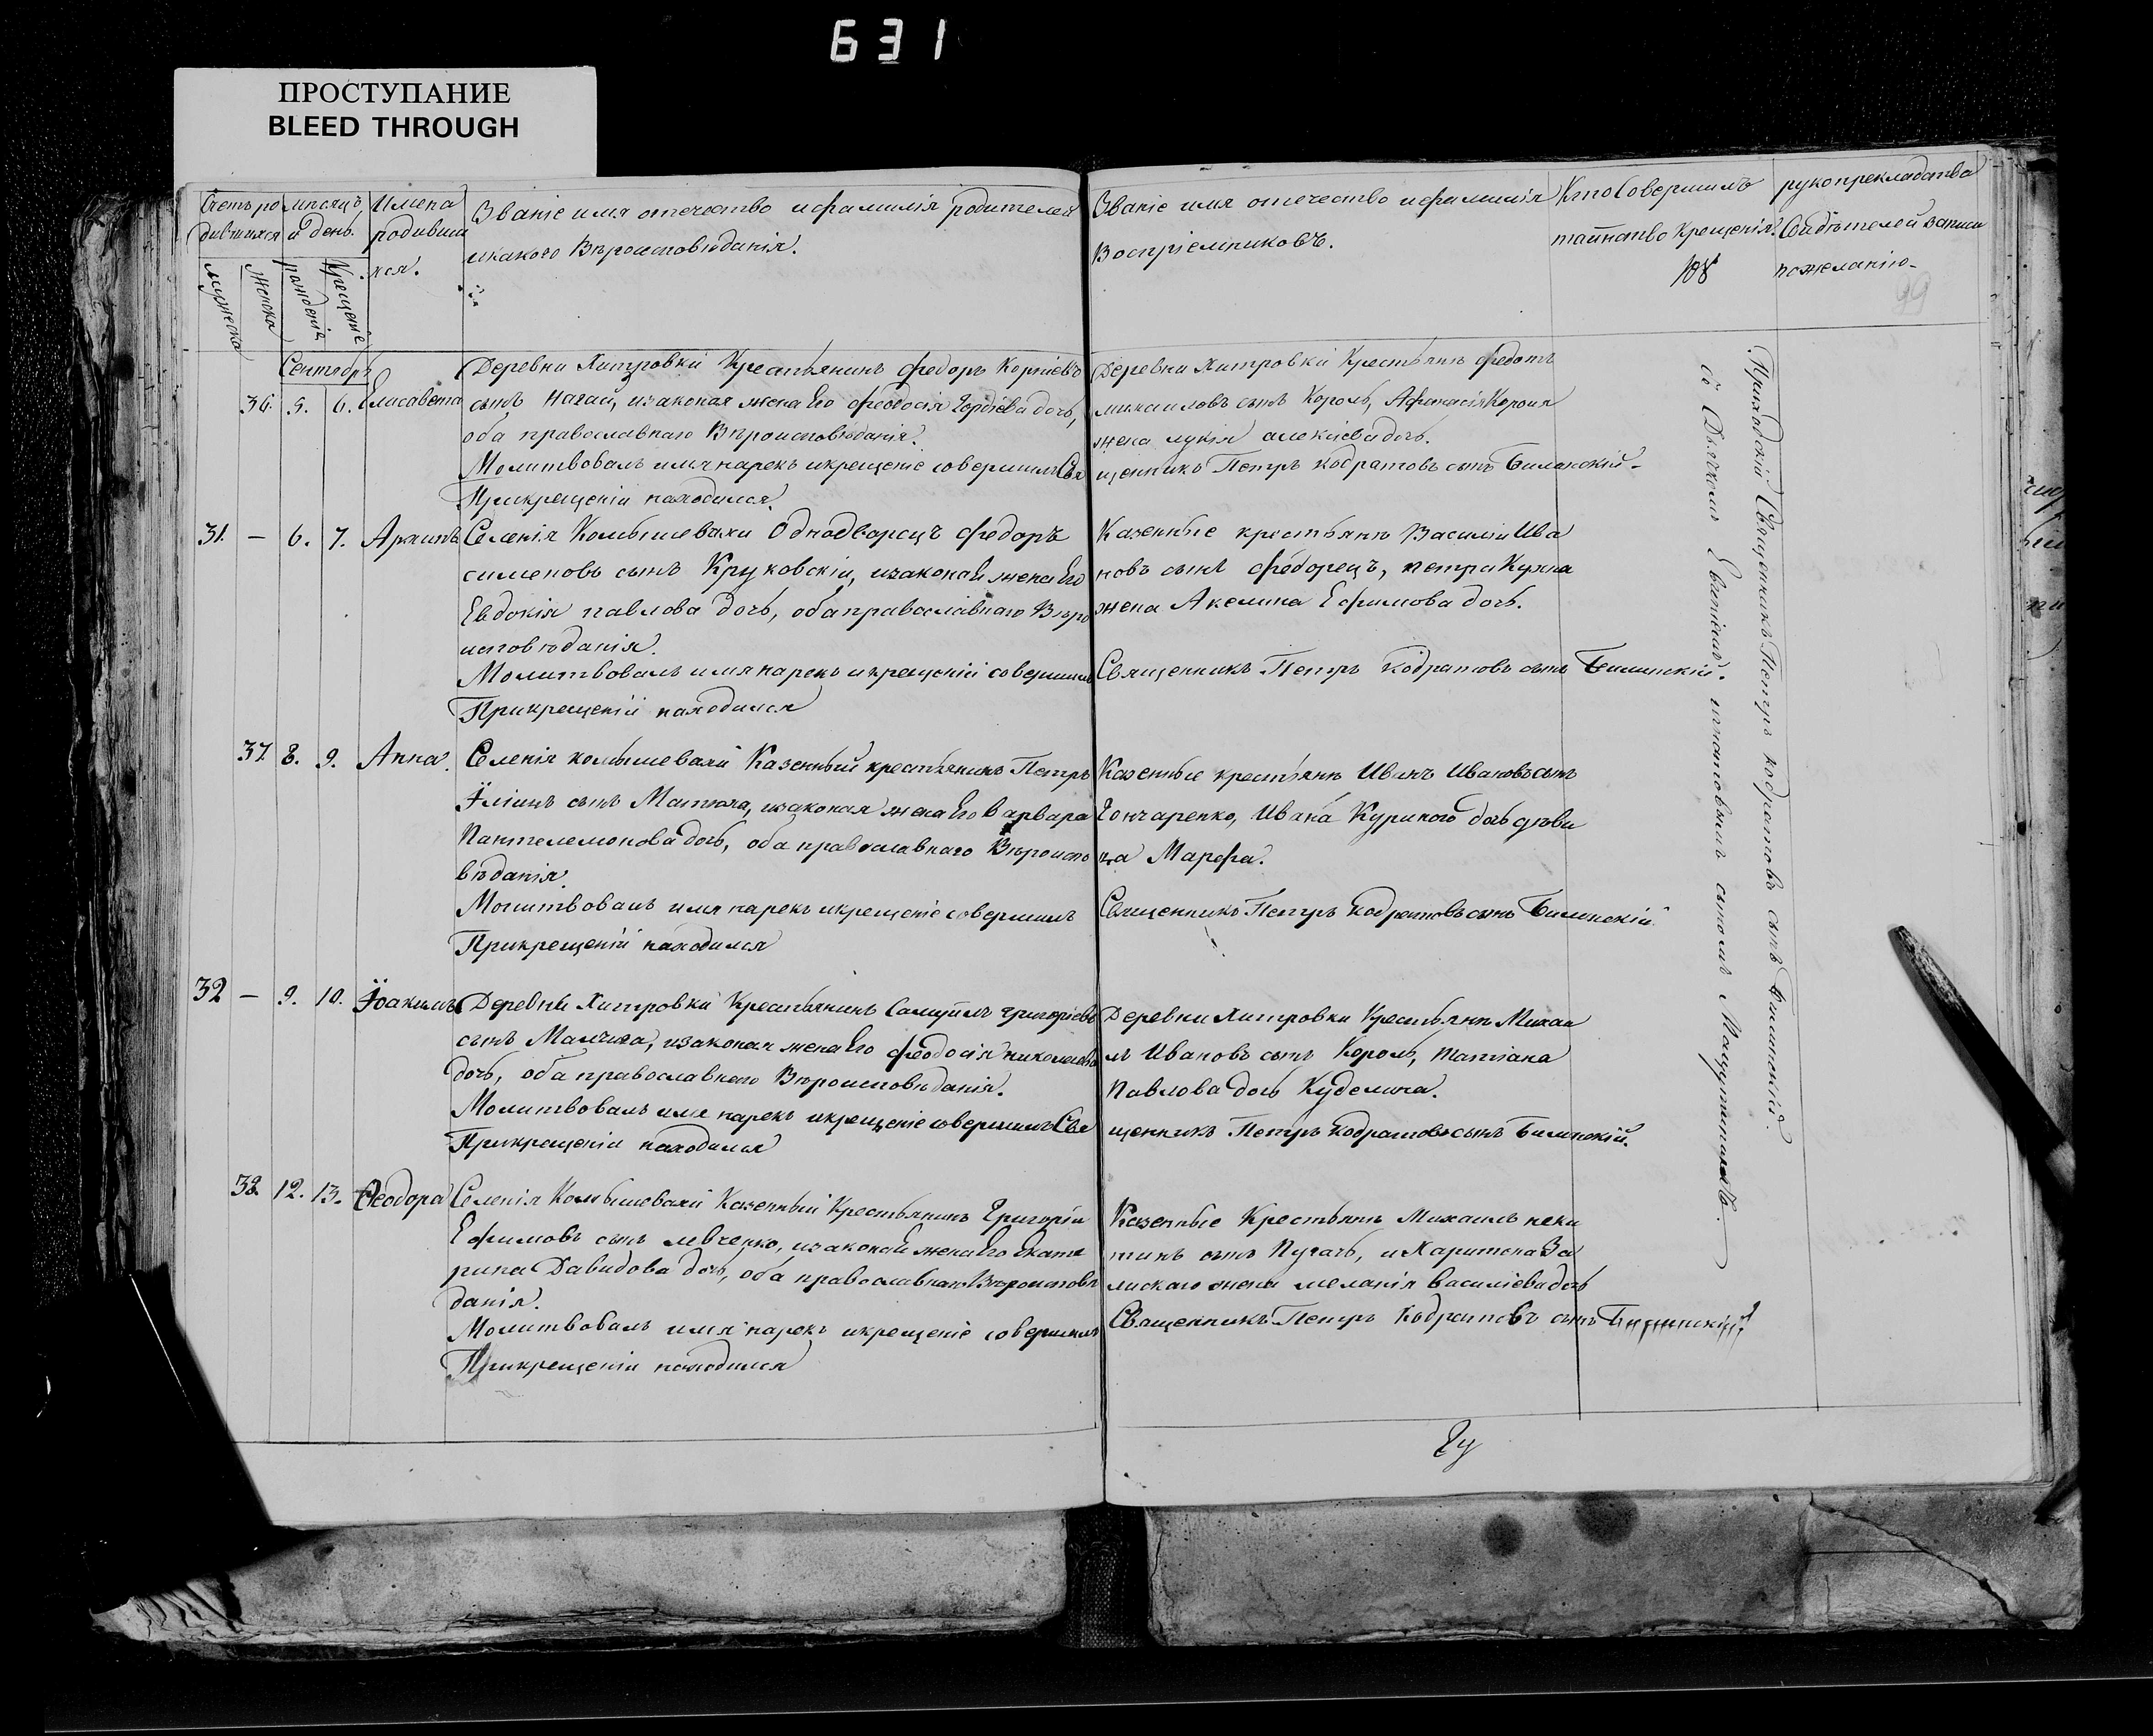 631
ПРОСТУПАНИЕ
BLEED THROUGH
Счетъ ро
дившихся
мужеска
женска
мѣсяцъ
и день.
рожденіе
Крещеніе
Имена
родивши
хся.
Званіе имя отечество и фамилія родителей
и какого Вѣроисповѣданія.
Званіе имя отечество и фамилія
Воспріемниковъ.
Кто Совершилъ
таинство Крещенія.
108
рукоприкладства
Свидѣтелей записи
по желанію.
99
Сентябрь
36. 5. 6. Елисавета
Деревни Хитровки Крестьянинъ федоръ Корніевъ
сынъ Нагай, изаконая жена Его феодосія Гордіева дочь,
оба православнаго Вѣроисповѣданія.
Молитвовалъ имя нарекъ икрещеніе совершилъ Свя
Прикрещеніи находился.
Деревни Хитровки Крестьянъ федотъ
михаиловъ сынъ Король, Афанасія Короля
жена лукія алексіева дочь.
щенникъ Петръ кодратовъ сынъ Билинскій.
31. — 6. 7. Архипъ
Селенія Комышевахи Однодворецъ федоръ
сименовъ сынъ Круковскій, изаконая жена Его
Евдокія павлова дочь, оба православнаго Вѣро
исповѣданія.
Молитвовалъ имя нарекъ икрещеніе совершилъ
Прикрещеніи находился
Казенные крестьяне Василій Ива
новъ сынъ федорецъ, петра Кухна
жена Акелина Ефимова дочь.
Священникъ Петръ кодратовъ сынъ Билинскій.
37. 8. 9. Анна.
Селенія комышевахи Казенный крестьянинъ Петръ
Иліинъ сынъ Матюха, изаконая жена Его варвара
Пантелемонова дочь, оба православнаго Вѣроиспо
вѣданія.
Молитвовалъ имя нарекъ икрещеніе совершилъ
Прикрещеніи находился
Казенные крестьяне Иванъ Ивановъ сынъ
Гончаренко, Ивана Куриного дочь дѣви
ца Марфа.
Священникъ Петръ кодратовъ сынъ Билинскій
32 — 9. 10. Іоакимъ
Деревни Хитровки Крестьянинъ Самуилъ григоріевъ
сынъ Мамчича, изаконая жена Его феодосія николаева
дочь, оба православнаго Вѣроисповѣданія.
Молитвовалъ имя нарекъ икрещеніе совершилъ Свя
Прикрещеніи находился
Деревни Хитровки Крестьяне Михаи
лъ Ивановъ сынъ Король, татіана
Павлова дочь Куделича.
щенникъ Петръ кодратовъ сынъ Билинскій.
38. 12. 13. Феодора
Селенія Комышевахи Казенный Крестьянинъ Григорій
Ефимовъ сынъ левченко, изаконая жена Его Екате
рина Давидова дочь, оба православнаго Вѣроисповѣ
данія.
Молитвовалъ имя нарекъ икрещеніе совершилъ
Прикрещеніи находился
Казенные Крестьяне Михаилъ ники
тинъ сынъ Пугачъ, и Харитона За
лискаго жена меланія василіева дочь
Священникъ Петръ Кодратовъ сынъ Билинскій
Приходскій Священникъ Петръ кодратовъ сынъ Билинскій.
съ Дьячкомъ Евтіемъ игнатовымъ сыномъ